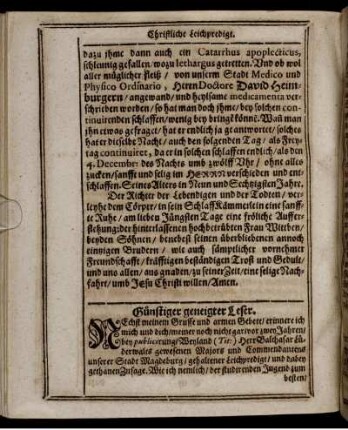 Christliche Leichpredigt.
dazu jhme dann auch ein Catarrhus apoplecticus,
schleunig gefallen/ wozu lethargus getretten. Und ob wol
aller müglicher fleiß/ von unserm Stadt Medico und
Physico Ordinario, Herrn Doctore David Heim-
burgern/ angewand/ und heylsame medicamenta ver-
schrieben worden/ so hat man doch jhme/ bey solchen con-
tinuirenden schlaffen/ wenig bey bringẽ könnẽ. Wañ man
jhn etwas gefraget/ hat er endlich ja geantwortet/ solches
hat er dieselbe Nacht/ auch den folgenden Tag/ als Frey-
tag continuiret, da er in solchen schlaffen endlich/ als den
4. Decembr: des Nachts umb zwölff Uhr/ ohne alles
zucken/ sanffte und selig im HERRN verschieden und ent-
schlaffen. Seines Alters im Neun und Sechzigsten Jahre.
Der Richter der Lebendigen und der Todten/ ver-
leyhe dem Cörper/ in sein Schlaff Kämmerlein eine sanff-
te Ruhe/ am lieben Jüngsten Tage eine fröliche Auffer-
stehung: der hinterlassenen hochbetrübten Frau Witben/
beyden Söhnen/ benebest seinen überbliebenen annoch
einzigen Brudern/ wie auch sämptlicher vornehmer
Freundschafft/ kräfftigen beständigen Trost und Gedult/
und uns allen/ aus gnaden/ zu seiner Zeit/ eine selige Nach-
fahrt/ umb Jesu Christi willen/ Amen.
Günstiger geneigter Leser.
NEchst meinem Grusse und armen Gebett/ erinnere ich
mich und dich meiner noch nicht gar vor zwen Jahren/
bey publicirung Weyland (Tit:) Herr Balthasar Lü-
derwales gewesenen Majors und Commendantens
unserer Stadt Magdeburg/ gehaltener Leichpredigt/ und dabey
gethanen Zusage. Wie ich nemlich/ der studirenden Jugend zum
besten/